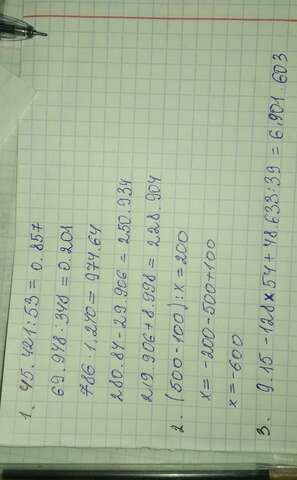 1. 45.421:53=0.857
69.948:348=0.201
786·1.240=974.64
280.84-29.906=250.934
219 906+8.998=228.904
2. (500-100):x=200
x=-200-500+100
x=-600
3. 9.15-128×54+48633:39=6.901.603